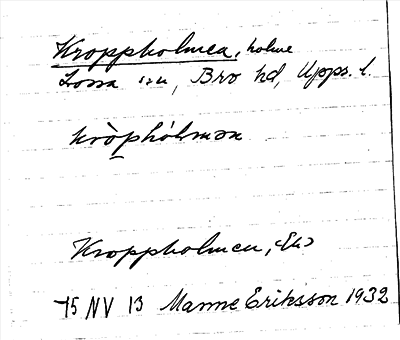 Kroppholmen, holme
Lossa sn, Bro hd, Upps. l.
kròphólmən
Kroppholmen, Ek
75 NV 13 Manne Eriksson 1932